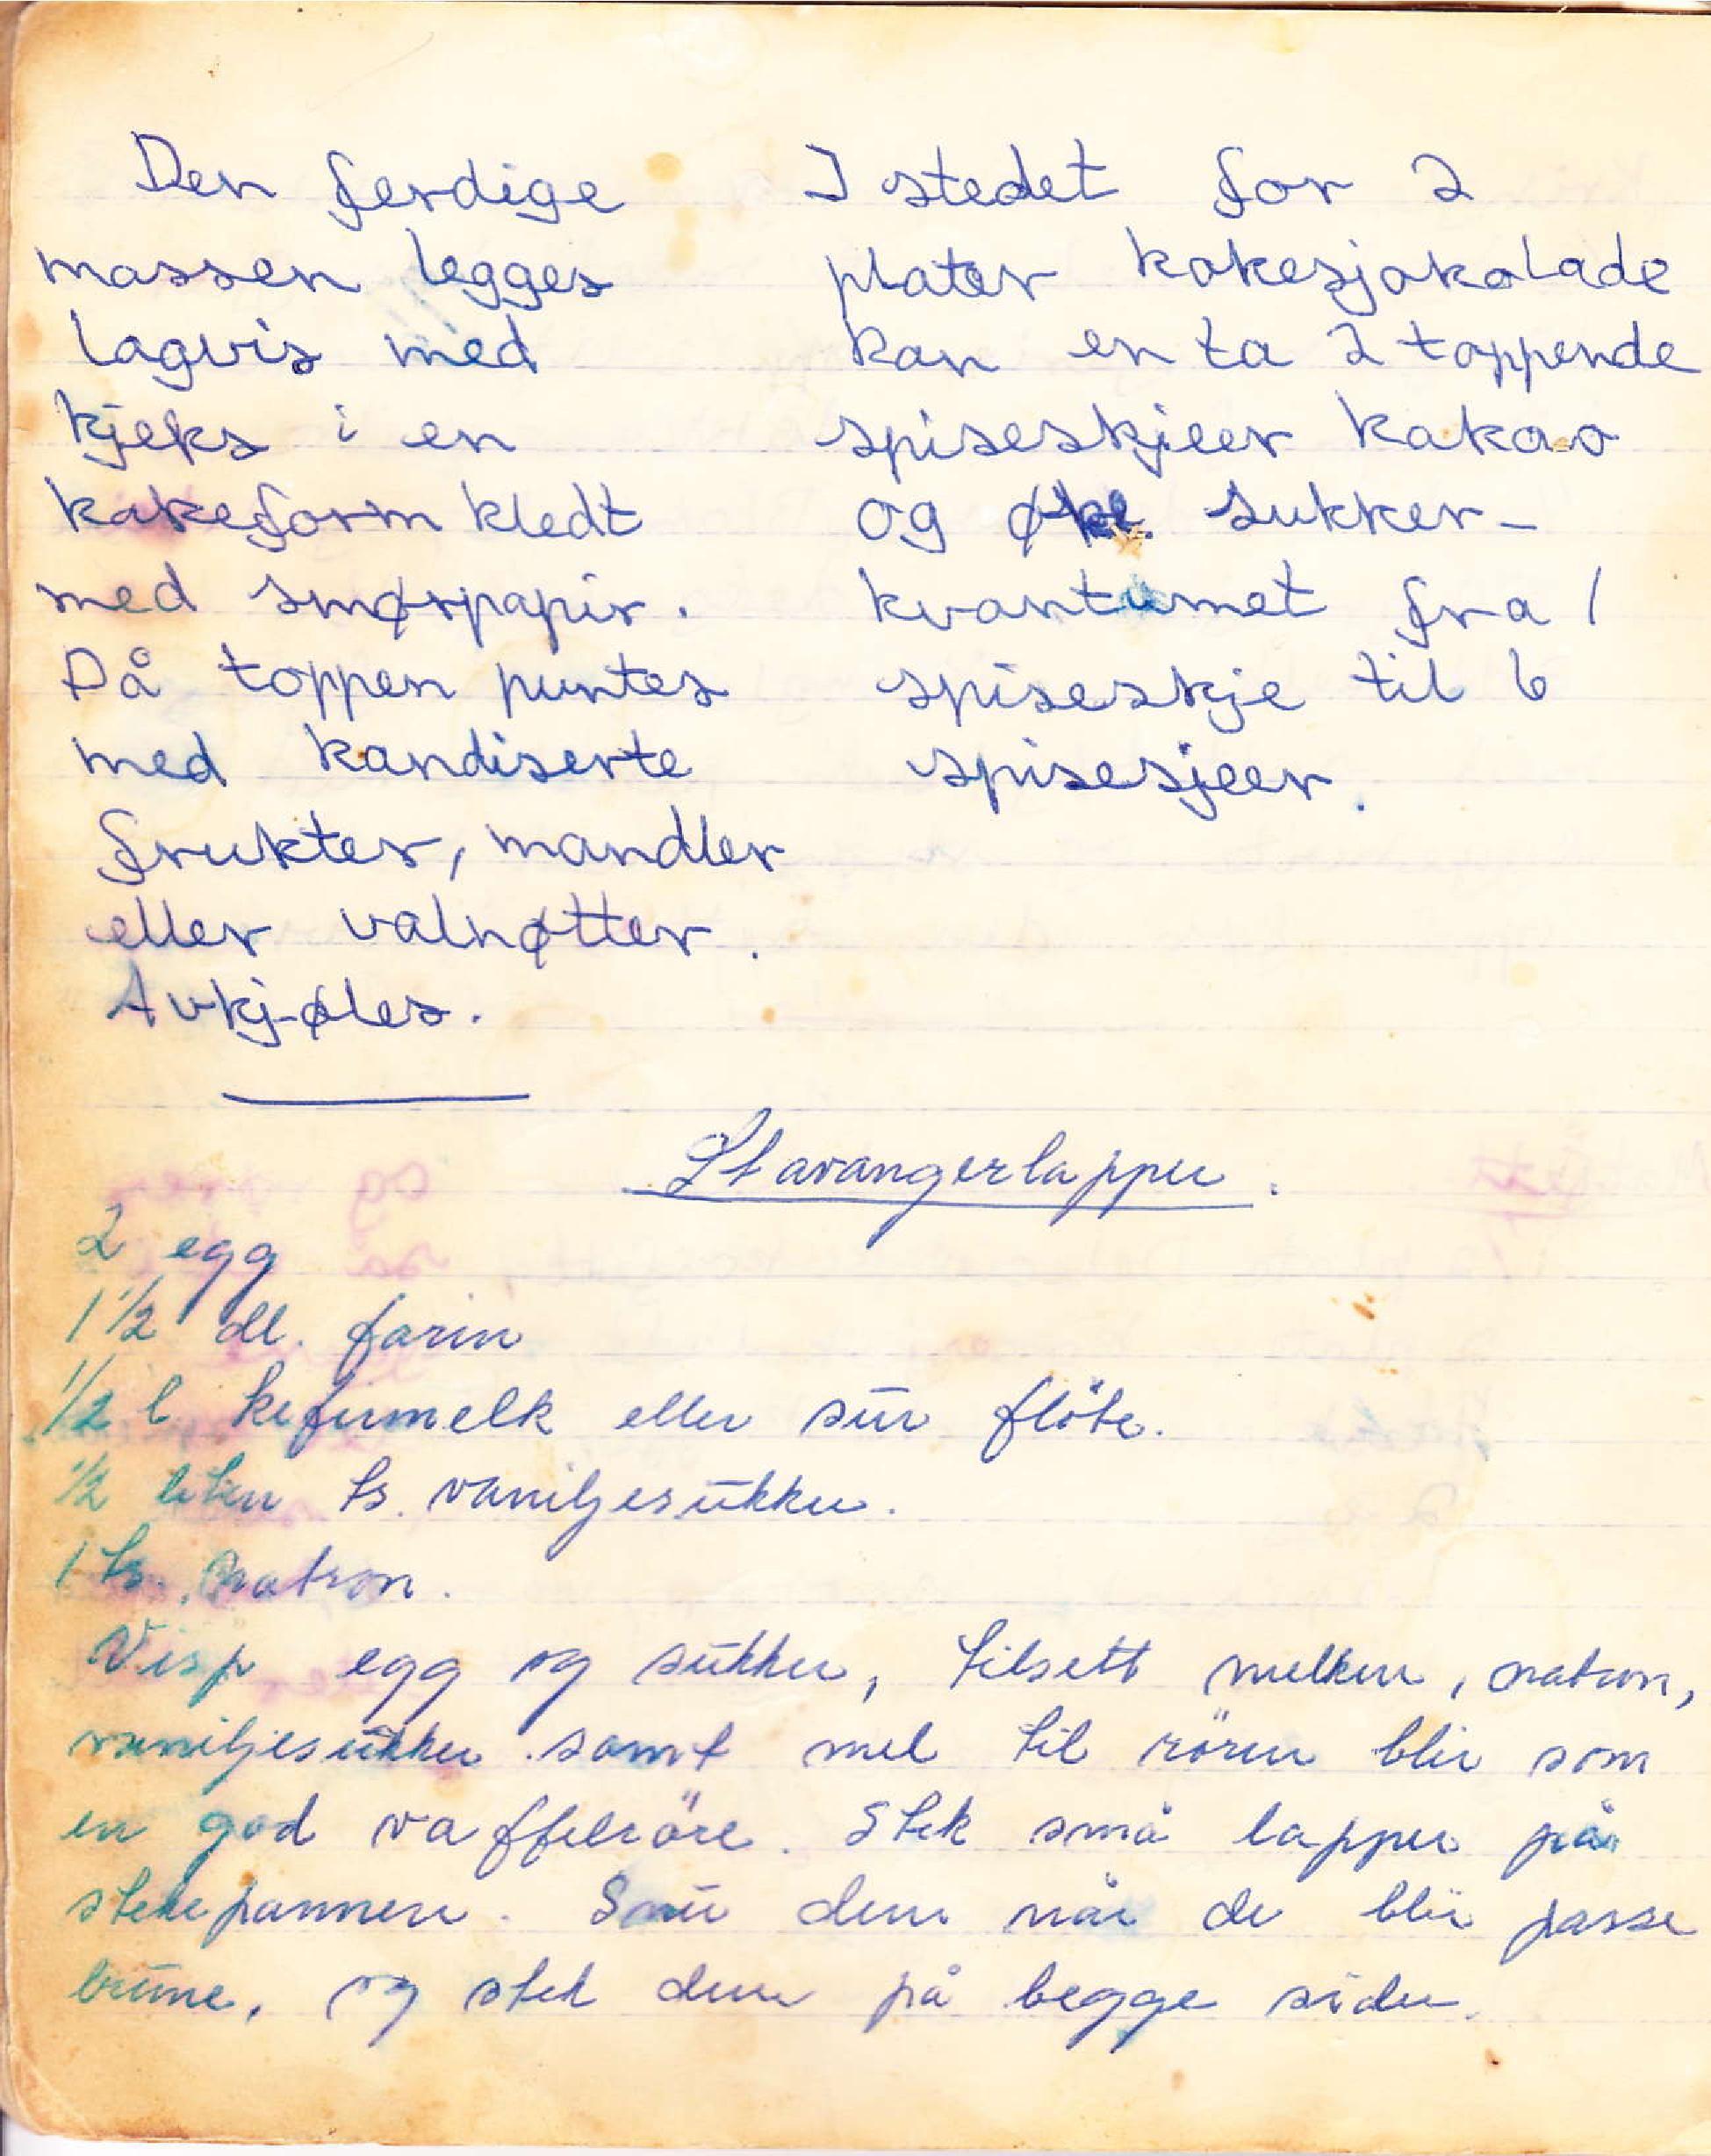 Den ferdige
massen legges
lagvis med
kjeks i en
kakeform kledt
med smørpapir.
På toppen puntes
med kandiserte
frukter, mandler
eller valnøtter.
Avkjøles.
I stedet for 2
plater kokesjokolade
kan en ta 2 toppende
spiseskjeer kakao
og øke sukker-
kvantumet fra 1
spiseskje til 6
spisesjeer.
Stavangerlapper.
2 egg
1 1/2 dl. farin
1/2 l kefirmelk eller sur fløte.
1/2 liten ts. vaniljesukker.
1 ts. natron.
Visp egg og sukker, tilsett melken, natron,
vaniljesukker samt mel til rören blir som
en god vaffelröre. Stek små lapper på
stekepannen. Snu dem når de blir passe
brune, og stek dem på begge sider.